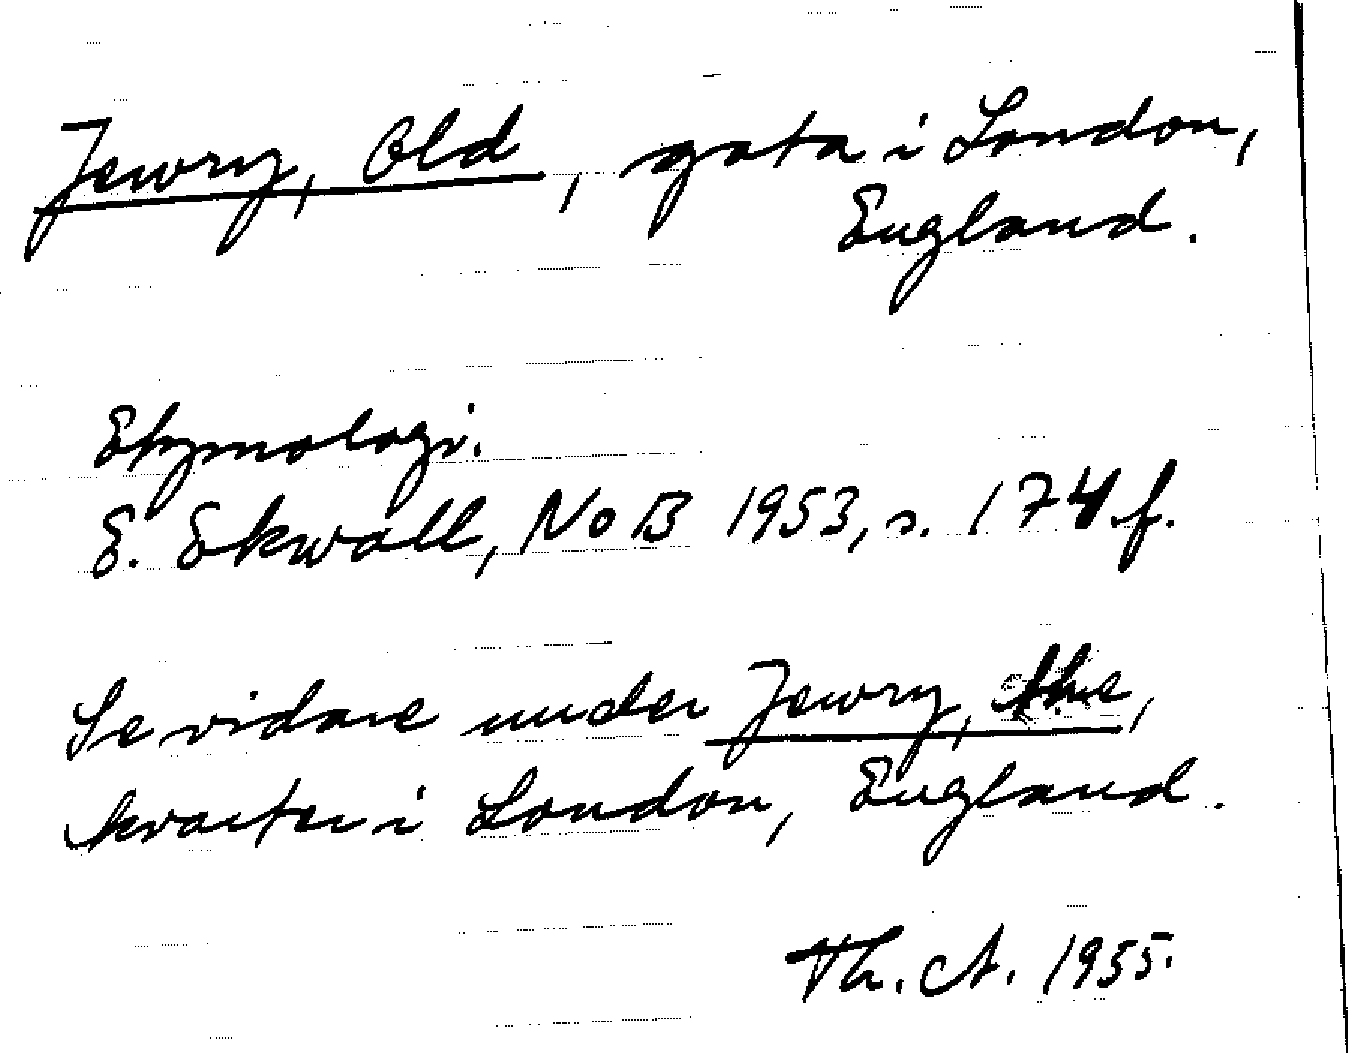 Jewry, Old, gata i London,
England.
Etymologi.
E. Ekwall, NoB 1953, s. 174 f.
Se vidare under Jewry, the,
kvarter i London, England.
Th. A. 1955.